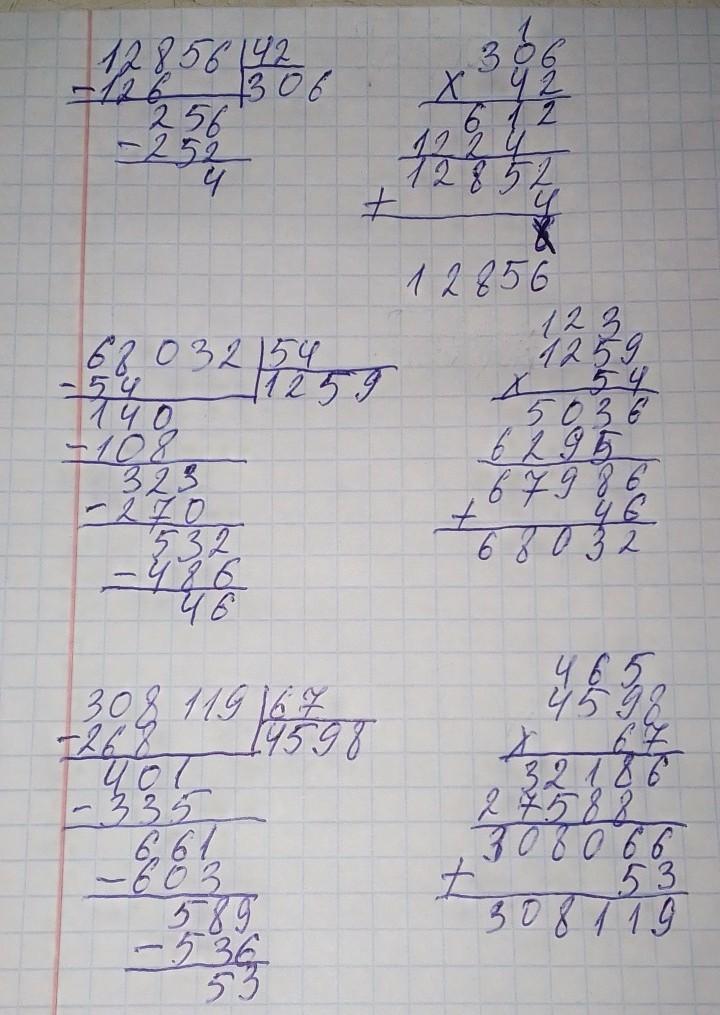 12856 42
-126 306
256
-252
4
1
306
x 42
612
1224
12852
+ 4
12856
68032 54
-54 1259
140
-108
323
-270
532
-486
46
123
1259
x 54
5036
6295
67986
+ 46
68032
308 119 67
-268 4598
401
-335
661
-603
589
-536
53
465
4598
x 67
32186
27588
308066
+ 53
308119